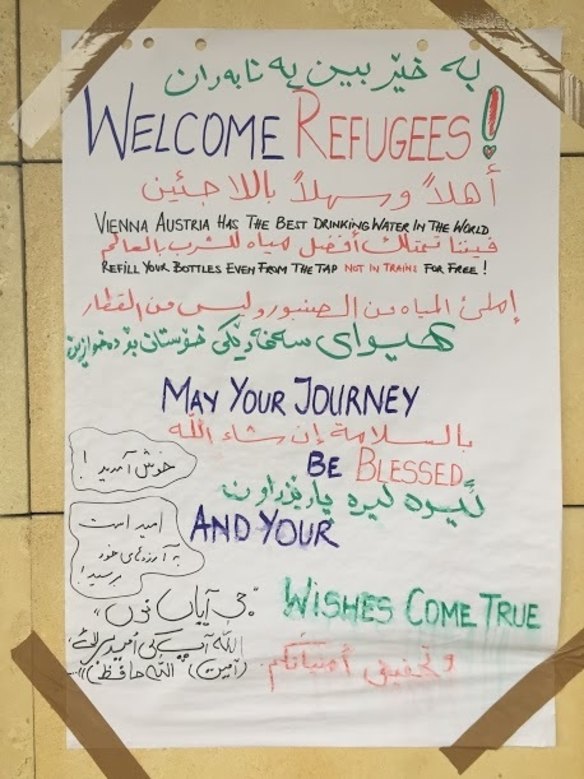 بە خێر بین پە نابەران
WELCOME REFUGEES!
أهلاً وسهلاً باللاجئين
VIENNA AUSTRIA HAS THE BEST DRINKING WATER IN THE WORLD
فيننا تمتلك أفضل مياه للشرب بالعالم
REFILL YOUR BOTTLES EVEN FROM THE TAP NOT IN TRAINS FOR FREE!
إملئ المياه من الصنبور وليس من القطار
هیوای سەفەرێکی خۆشتان بۆ دەخوازین
MAY YOUR JOURNEY
بالسلامة إن شاء الله
BE BLESSED
ئێوە لێرە پارێزراون
AND YOUR
خوش آمدید!
امید است
به آرزوهای خود
برسید!
WISHES COME TRUE
"جی آیاں نوں"
اللہ آپ کی امید
(آمین) اللہ حافظ"
وتحقيق أمنياتكم